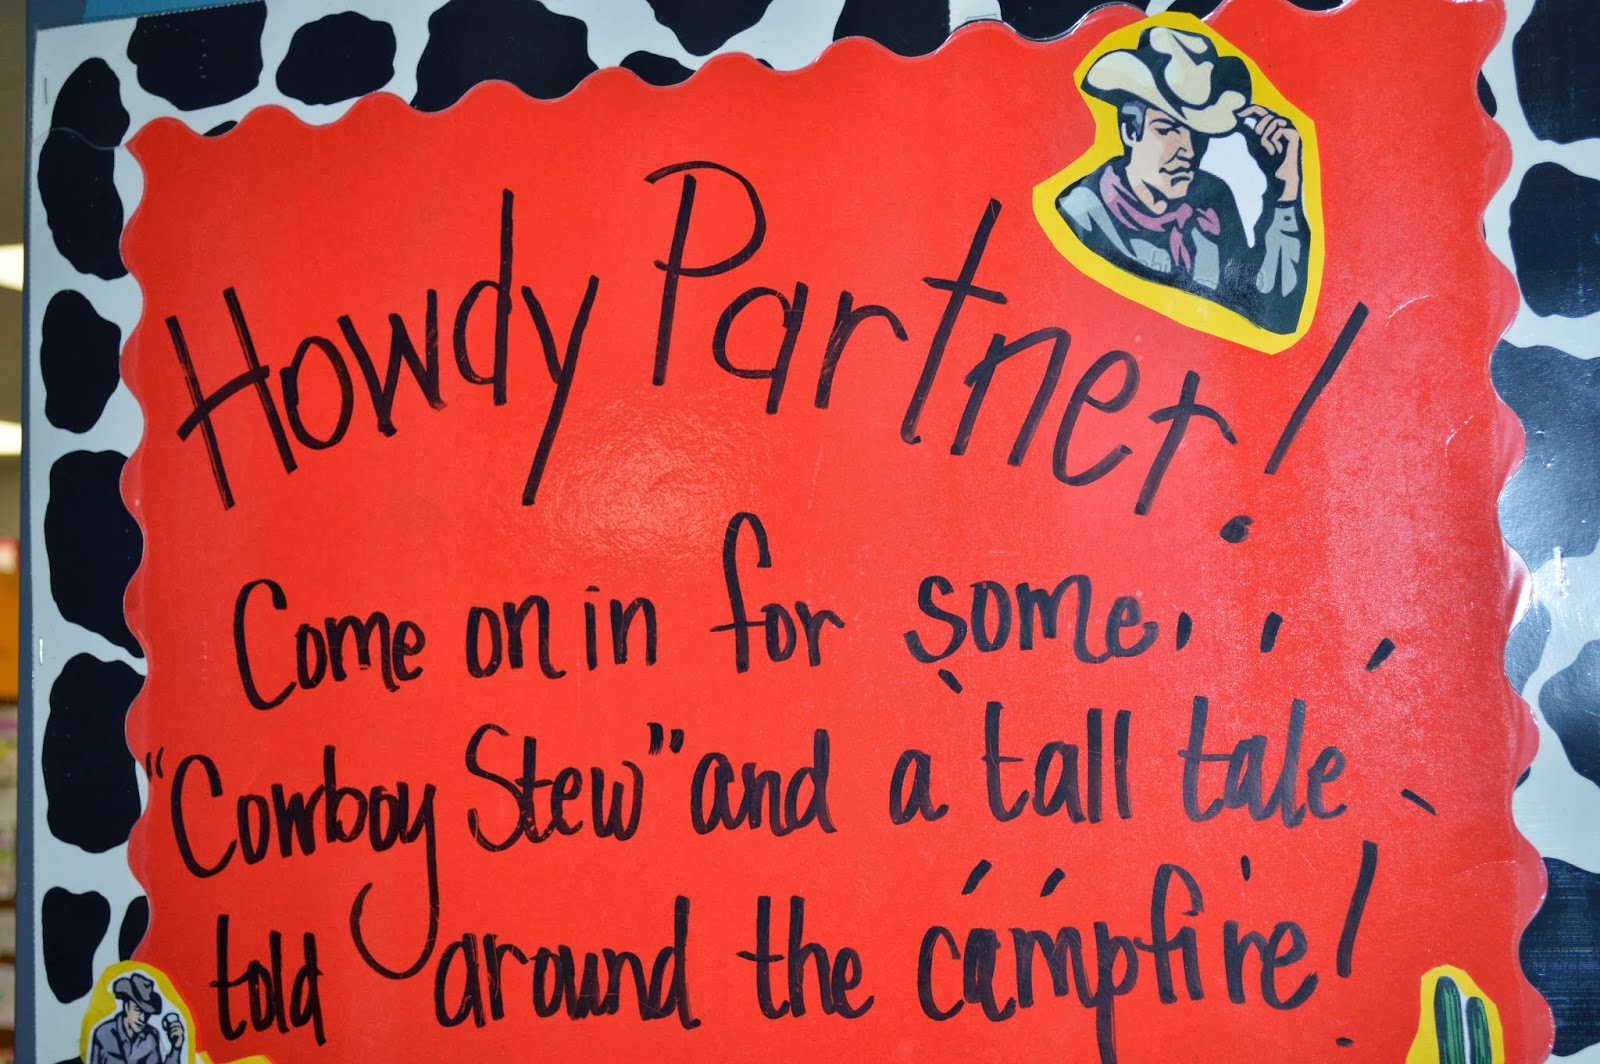 Howdy Partner!
Come on in for some...
"Cowboy Stew" and a tall tale
told around the campfire!